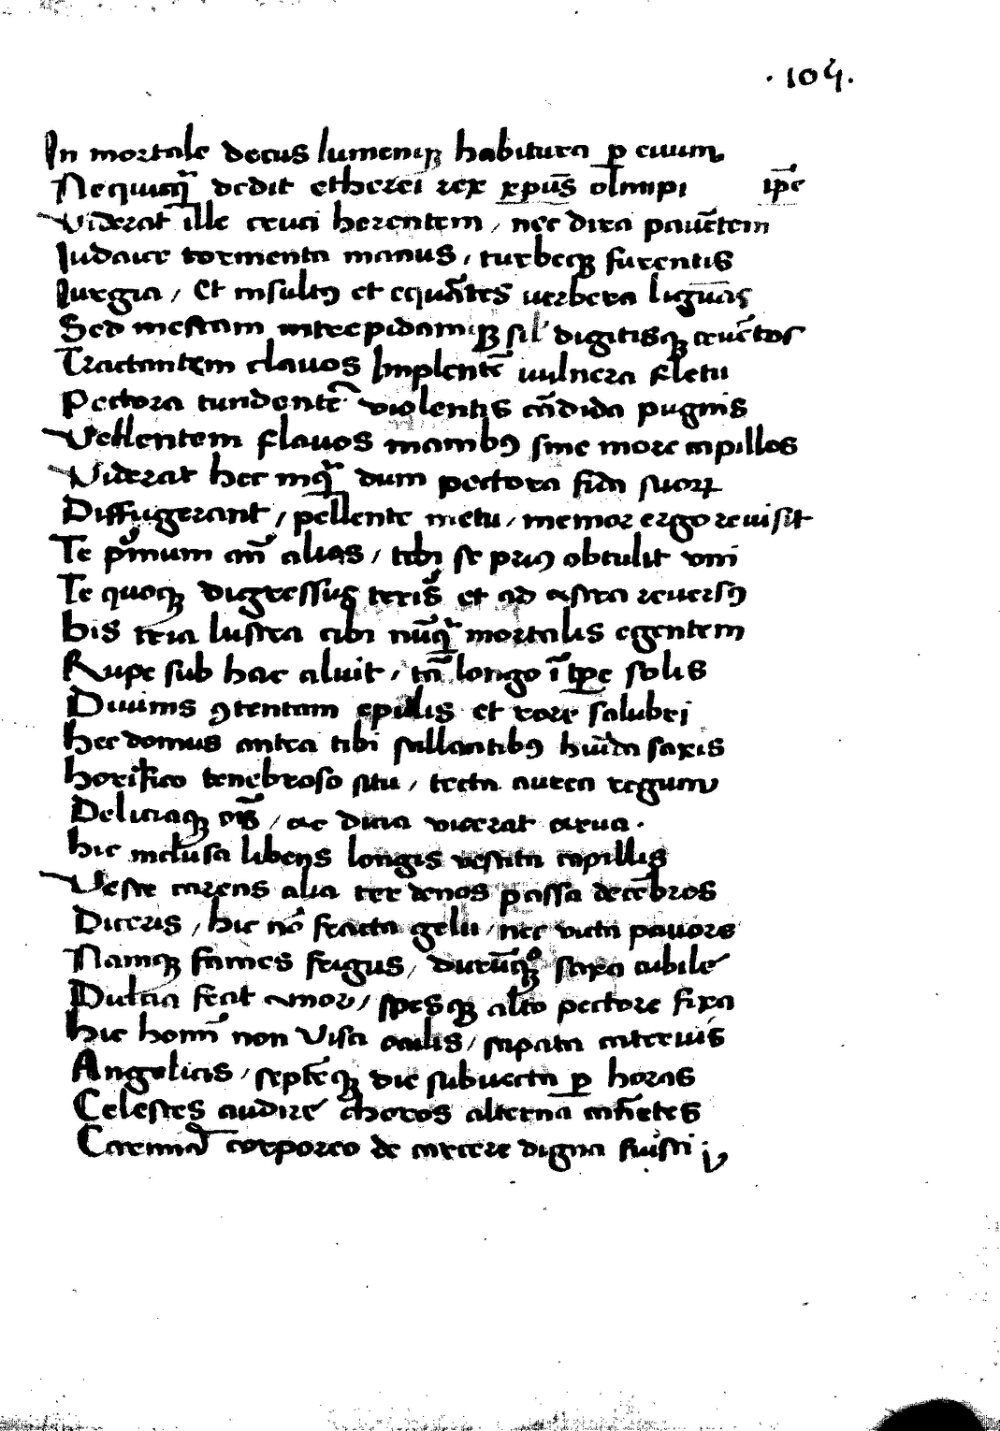 · 104 ·
In mortale decus lumenqꝫ habitura ꝑ euum
Nequiq̄ dedit etherei rex xp̄us olimpi ip̄e
Viderat ille cruci herentem / nec dira pauētem
Iudaice tormenta manus / turbeqꝫ furentis
Iurgia / Et insultꝰ et equātes uerbera liguas
Sed mestam intrepidamqꝫ sil' digitisqꝫ cruētos
Tractantem clauos Implentē uulnera fletu
Pectora tundentē violentis cādida pugnis
Vellentem flauos manibꝰ sine more capillos
Viderat hec inq̄ dum pectora fida suoꝝ
Diffugerant / pellente metu / memor ergo reuisit
Te pͥmum an̄ alias / tibi se priꝰ obtulit vni
Te quoqꝫ digressus teris̄ et ad astra reuersꝰ
his tria lustra cibi nūq̄ mortalis egentem
Rupe sub hac aluit / tā longo ī tp̄e solis
Diuinis ꝯtentam epulis et rore salubri
hec domus antra tibi stillantibꝰ huīda saxis
horifico tenebroso situ / tecta aurea regum
Deliciasqꝫ oīs / ac dicia vicerat arua ·
hic inclusa libens longis vestita capillis
Veste carens alia ter denos passa decēbros
Diceris / hic nō fracta gelu / nec victa pauore
Namqꝫ fames frigus / durūqꝫ saxo cubile
Dulcia fecit amor / spesqꝫ alto pectore fixa
hic hoīm̄ non Visa oculis / stipata cateruis
Angelicis / septēqꝫ die subuecta ꝑ horas
Celestes audire choros alterna canētes
Carmina corporeo de carcere digna fuisti ;